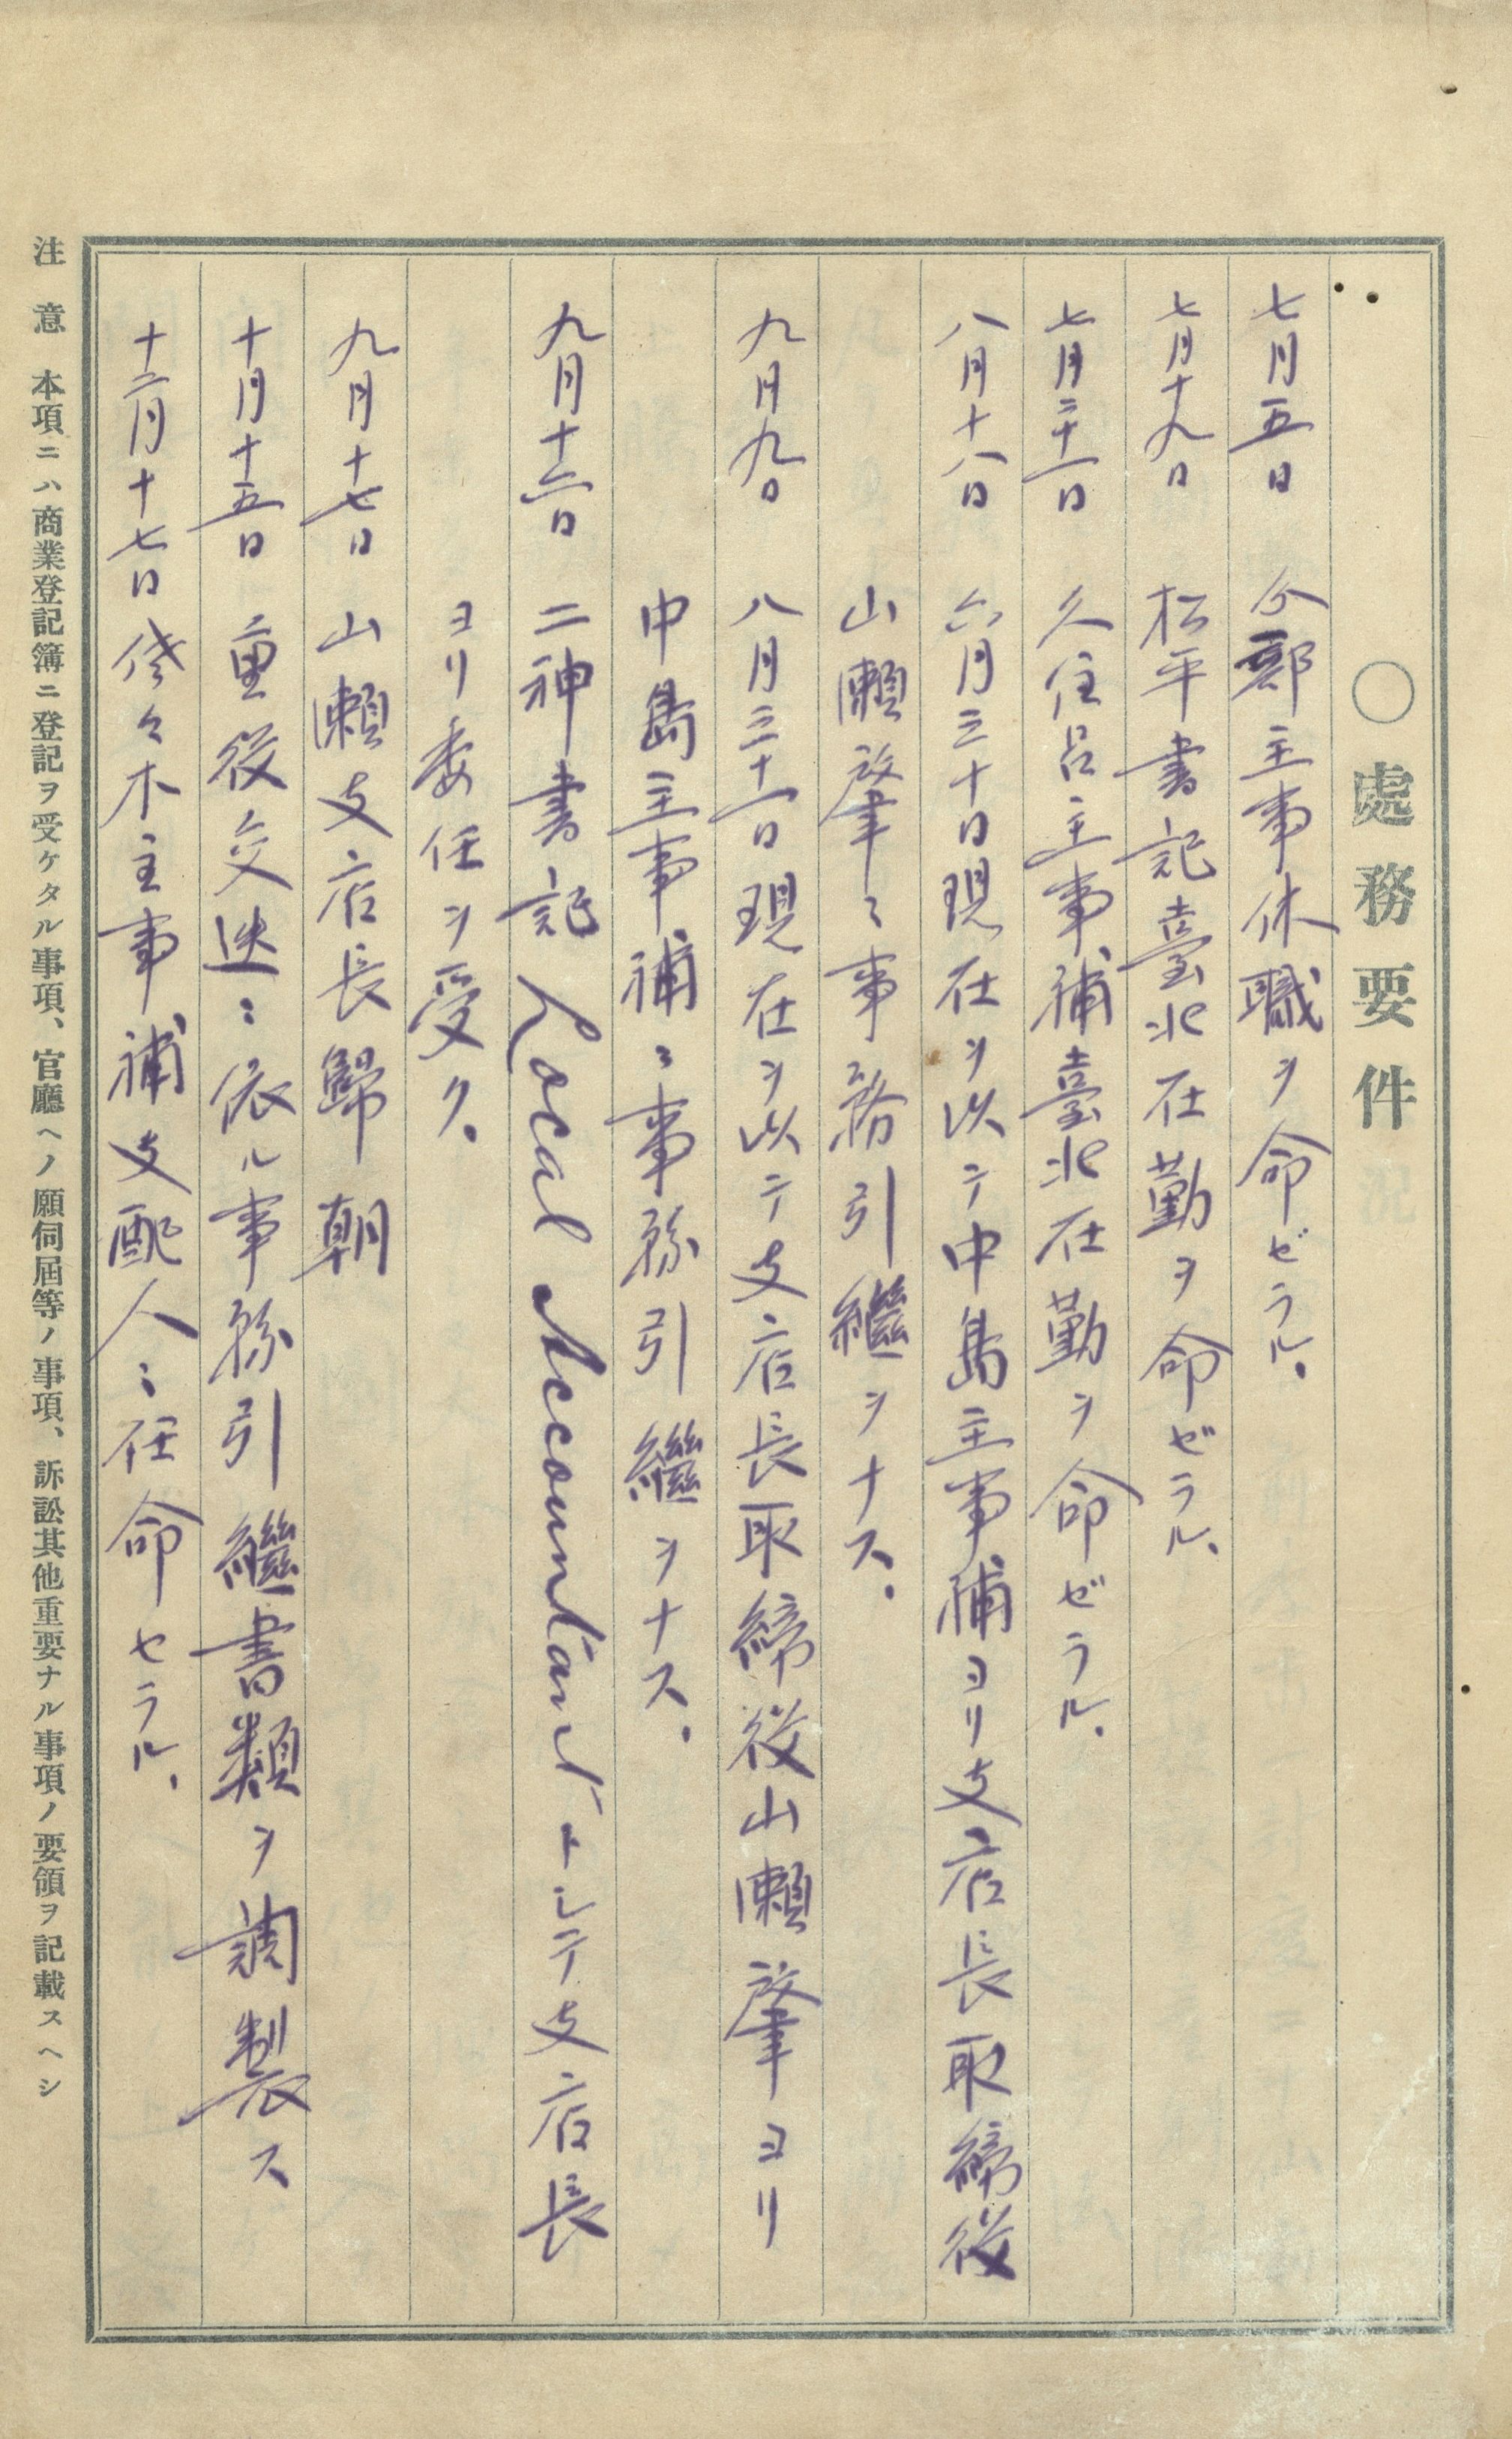 ○處務要件
七月五日　今鄭主事休職ヲ命ゼラル、
七月十九日　松平書記臺北在勤ヲ命ゼラル、
七月二十一日　久住呂主事補臺北在勤ヲ命ゼラル、
八月十八日　六月三十日現在ヲ以テ中島主事補ヨリ支店長取締役
山瀨肇ニ事務引繼ヲナス、
九月九日　八月三十一日現在ヲ以テ支店長取締役山瀨肇ヨリ
中島主事補ニ事務引繼ヲナス、
九月十六日　二神書記 Local Accountant トシテ支店長
ヨリ委任ヲ受ク、
九月十七日　山瀨支店長歸朝
十月十五日　重役交迭ニ依ル事務引繼書類ヲ調製ス
十二月十七日　佐々木主事補支配人ニ任命セラル、
注意　本項ニハ商業登記簿ニ登記ヲ受ケタル事項、官廳ヘノ願伺屆等ノ事項、訴訟其他重要ナル事項ノ要領ヲ記載スヘシ